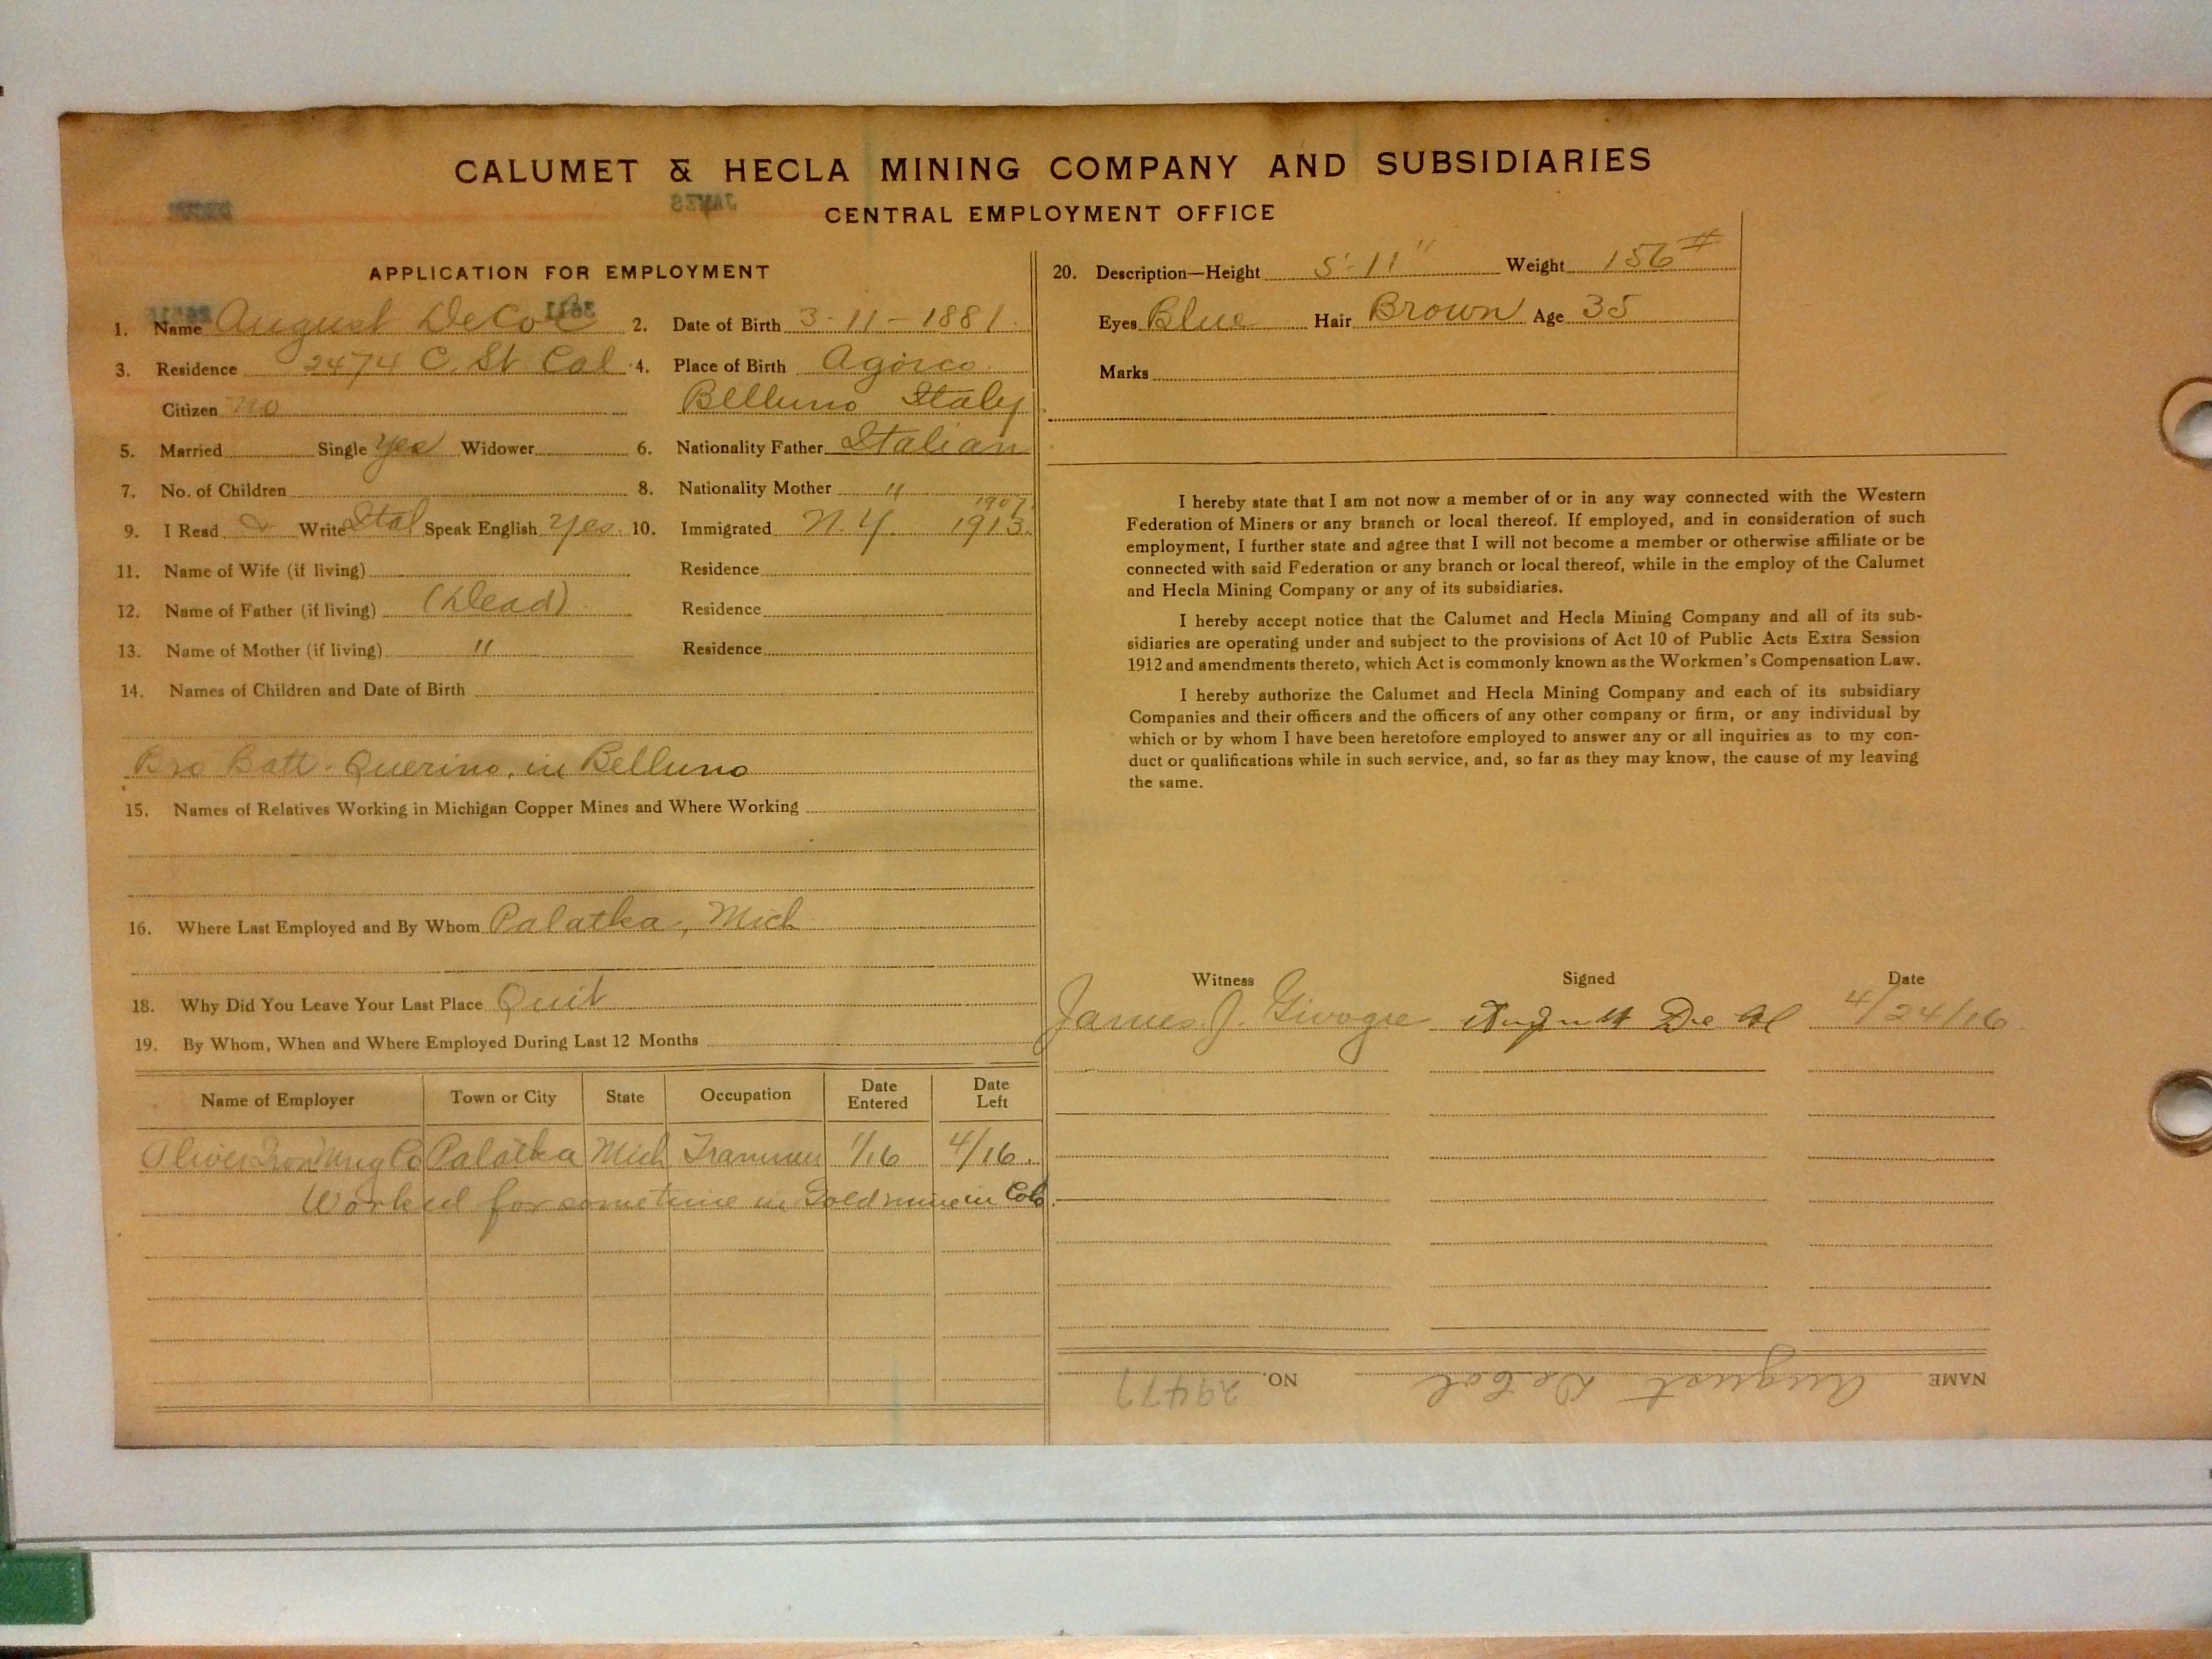 CALUMET & HECLA MINING COMPANY AND SUBSIDIARIES
CENTRAL EMPLOYMENT OFFICE
APPLICATION FOR EMPLOYMENT
1. Name August DeCol 2. Date of Birth 3-11-1881
3. Residence 2474 C. St Cal 4. Place of Birth Agorco
Citizen no Belluno Italy
5. Married Single yes Widower 6. Nationality Father Italian
7. No. of Children 8. Nationality Mother "
1907
9. I Read & Write Ital Speak English yes 10. Immigrated N.Y. 1913.
11. Name of Wife (if living) Residence
12. Name of Father (if living) (Dead) Residence
13. Name of Mother (if living) " Residence
14. Names of Children and Date of Birth
Bro Batt. Querino, in Belluno
15. Names of Relatives Working in Michigan Copper Mines and Where Working
16. Where Last Employed and By Whom Palatka, Mich
18. Why Did You Leave Your Last Place Quit
19. By Whom, When and Where Employed During Last 12 Months
Name of Employer Town or City State Occupation Date Entered Date Left
Oliver Iron Mng Co Palatka Mich Trammer 1/16 4/16
Worked for sometime in Gold mine in Colo.
20. Description—Height 5'-11" Weight 156#
Eyes Blue Hair Brown Age 35
Marks
I hereby state that I am not now a member of or in any way connected with the Western
Federation of Miners or any branch or local thereof. If employed, and in consideration of such
employment, I further state and agree that I will not become a member or otherwise affiliate or be
connected with said Federation or any branch or local thereof, while in the employ of the Calumet
and Hecla Mining Company or any of its subsidiaries.
I hereby accept notice that the Calumet and Hecla Mining Company and all of its sub-
sidiaries are operating under and subject to the provisions of Act 10 of Public Acts Extra Session
1912 and amendments thereto, which Act is commonly known as the Workmen's Compensation Law.
I hereby authorize the Calumet and Hecla Mining Company and each of its subsidiary
Companies and their officers and the officers of any other company or firm, or any individual by
which or by whom I have been heretofore employed to answer any or all inquiries as to my con-
duct or qualifications while in such service, and, so far as they may know, the cause of my leaving
the same.
Witness Signed Date
James J. August De Col 4/24/16
NAME August DeCol NO. 29477